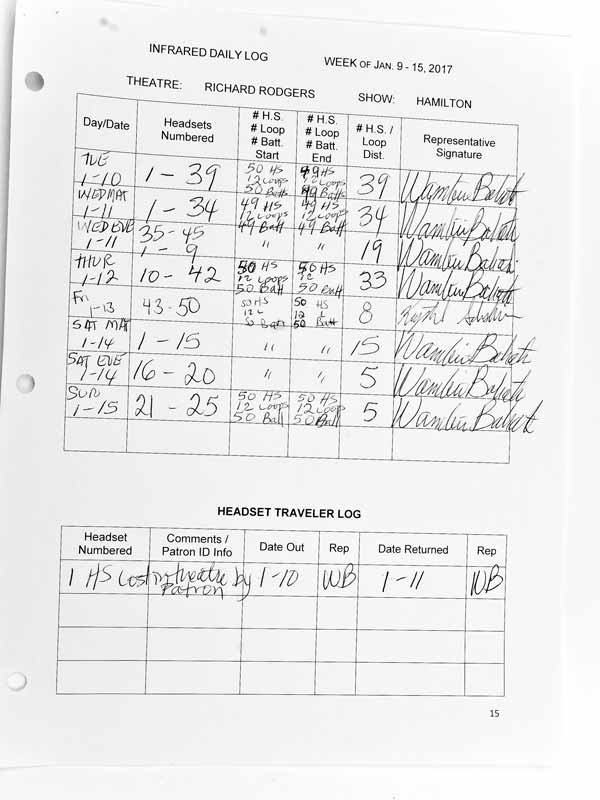 INFRARED DAILY LOG WEEK OF JAN. 9 - 15, 2017
THEATRE: RICHARD RODGERS SHOW: HAMILTON
Day/Date Headsets Numbered # H.S. # Loop # Batt. Start # H.S. # Loop # Batt. End # H.S. / Loop Dist. Representative Signature
TUE 1-10 1 - 39 50 HS 12 Loops 50 Batt 49 HS 12 Loops 49 Batt 39 Wambui Bahati
WED MAT 1-11 1 - 34 49 HS 12 Loops 49 Batt 49 HS 12 Loops 49 Batt 34 Wambui Bahati
WED EVE 1-11 35 - 45 1 - 9 " " 19 Wambui Bahati
THUR 1-12 10 - 42 50 HS 12 Loops 50 Batt 50 HS 12 50 Batt 33 Wambui Bahati
Fri 1-13 43-50 50 HS 12 L 50 Batt 50 HS 12 L 50 Batt 8
SAT MAT 1-14 1 - 15 " " 15 Wambui Bahati
SAT EVE 1-14 16 - 20 " " 5 Wambui Bahati
SUN 1-15 21 - 25 50 HS 12 Loops 50 Batt 50 HS 12 Loops 50 Batt 5 Wambui Bahati
HEADSET TRAVELER LOG
Headset Numbered Comments / Patron ID Info Date Out Rep Date Returned Rep
1 HS Lost in theatre by Patron 1-10 WB 1-11 WB
15